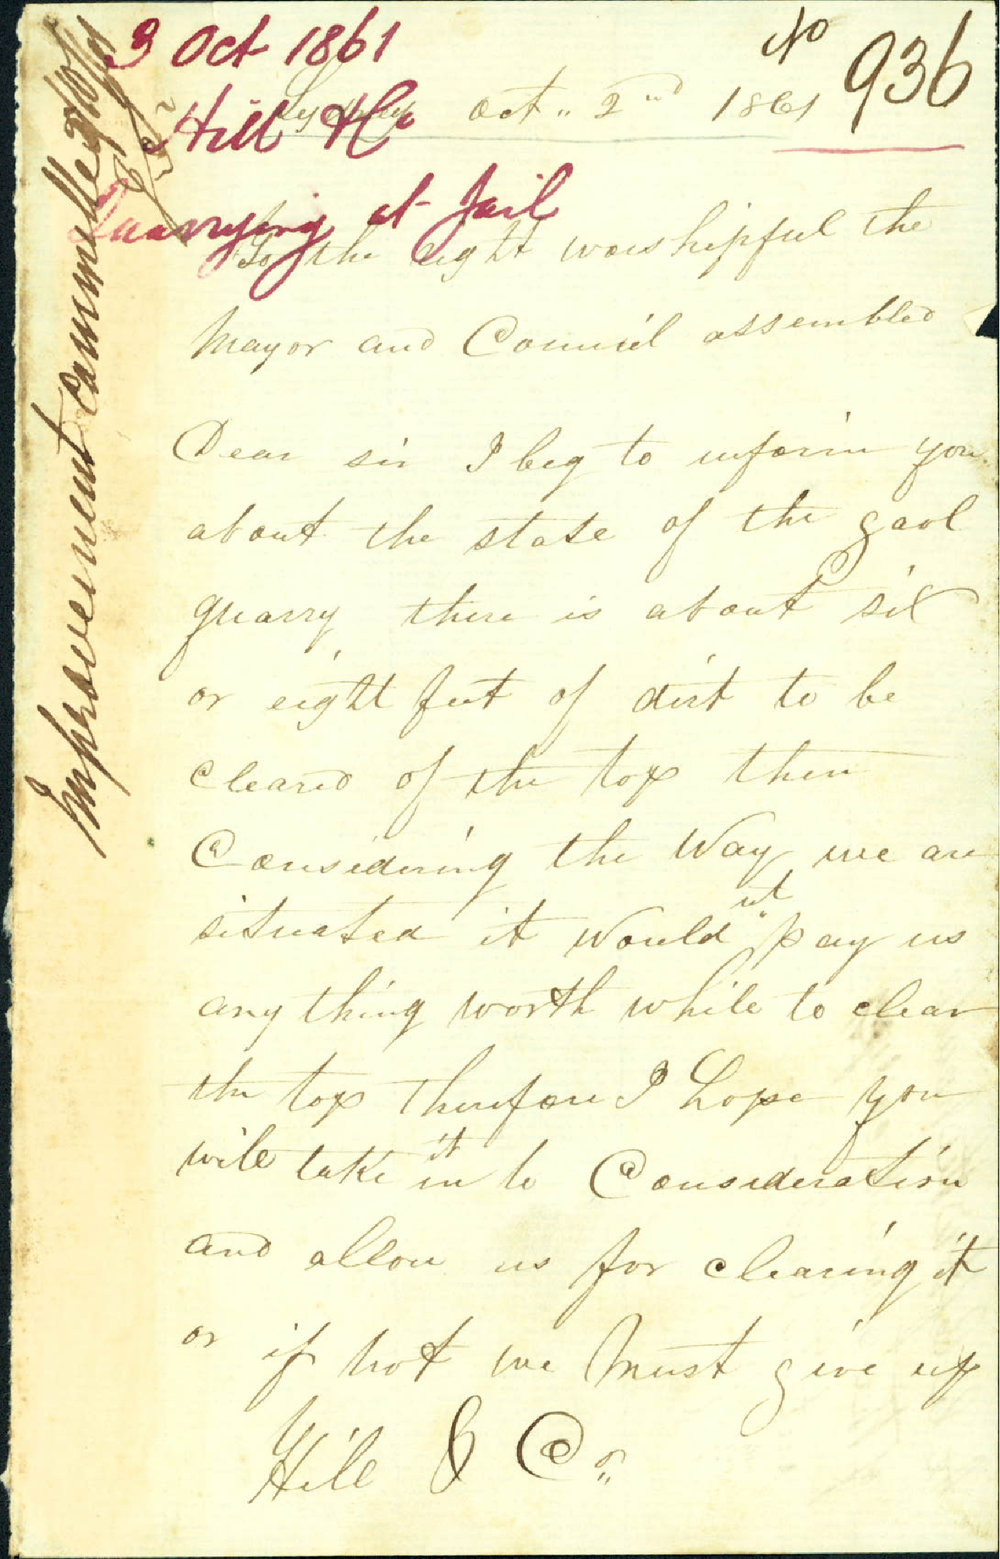 3 Oct 1861
No 936
Hill & Co
Sydney Oct 2nd 1861
Quarrying at Jail
Improvement Committee
To the right worshipful the
Mayor and Council assembled
Dear sir I beg to inform you
about the state of the gaol
quarry there is about six
or eight feet of dirt to be
cleard of the top then
Considering the Way we are
situated it would nt pay us
any thing worth while to clear
the top therefore I hope you
will take it in to Consideration
and allow us for clearing it
or if not we Must give up
Hill & Co